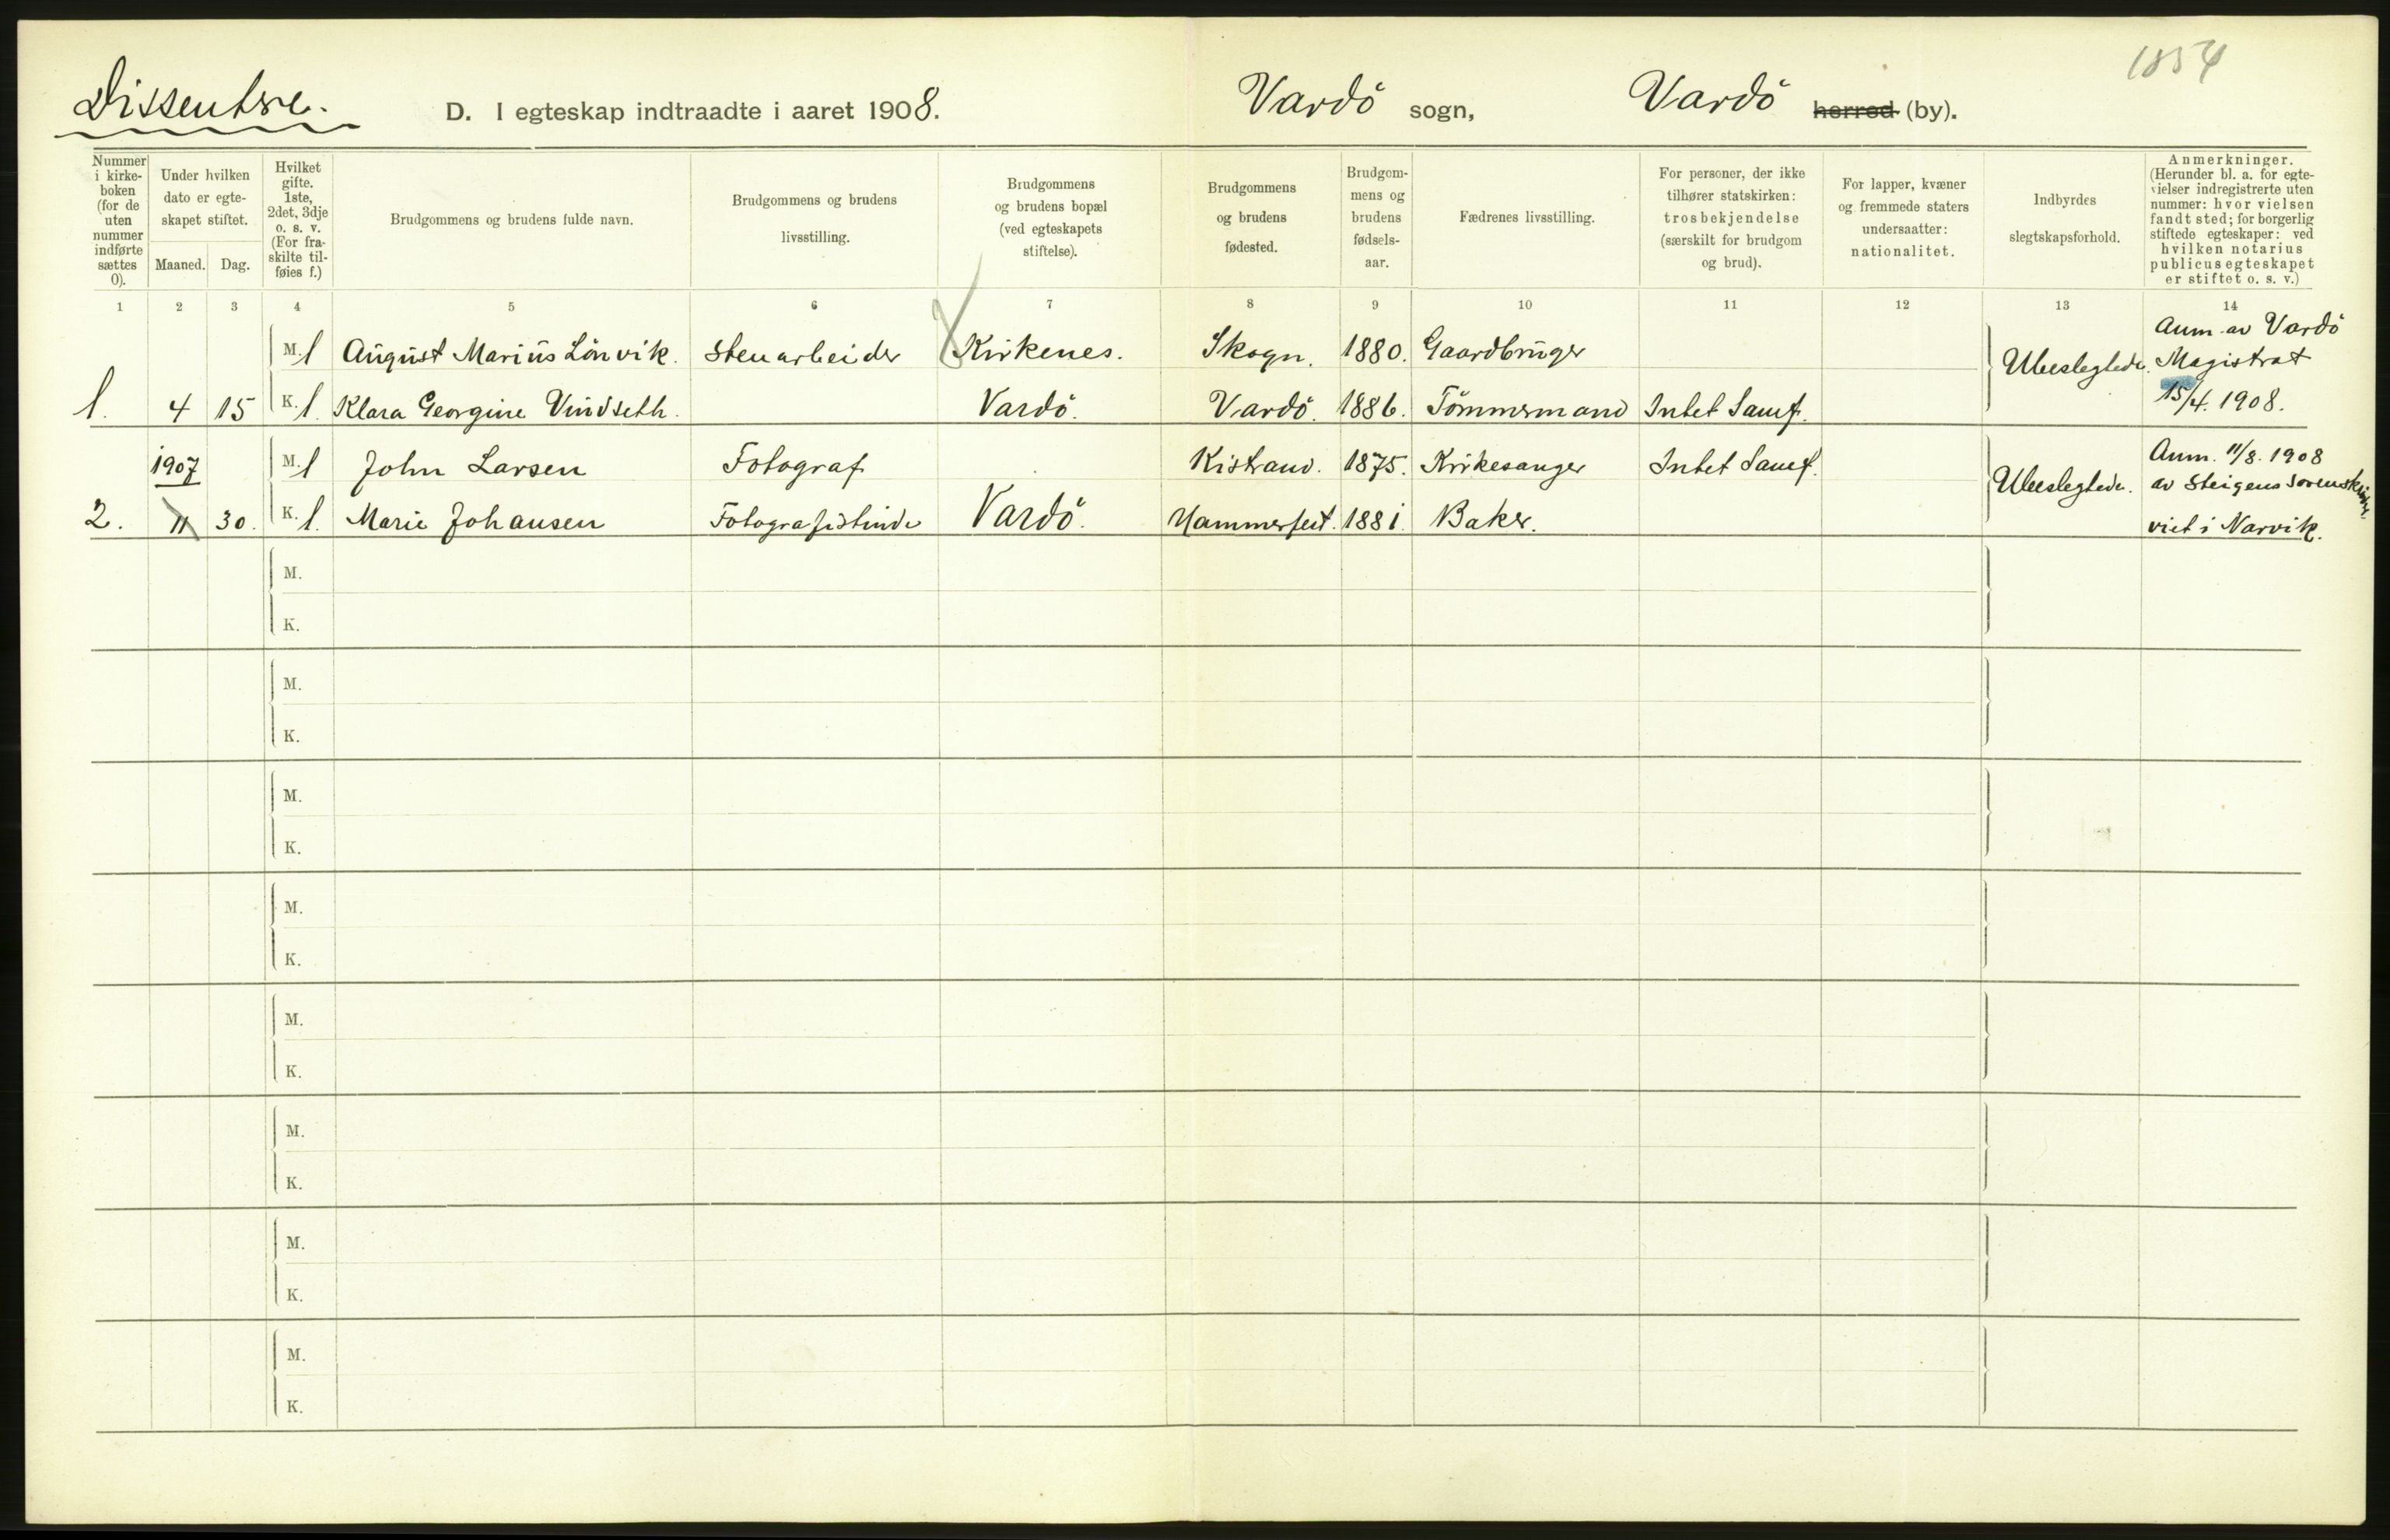 1854
Dissentere.
D. I egteskap indtraadte i aaret 1908. Vardö sogn, Vardö herred (by).
Nummer i kirke- boken (for de uten nummer indførte sættes 0).
Under hvilken dato er egte- skapet stiftet.
Maaned. Dag.
Hvilket gifte. 1ste, 2det, 3dje o. s. v. (For fra- skilte til- føies f.)
Brudgommens og brudens fulde navn.
Brudgommens og brudens livsstilling.
Brudgommens og brudens bopæl (ved egteskapets stiftelse).
Brudgommens og brudens fødested.
Brudgom- mens og brudens fødsels- aar.
Fædrenes livsstilling.
For personer, der ikke tilhører statskirken: trosbekjendelse (særskilt for brudgom og brud).
For lapper, kvæner og fremmede staters undersaatter: nationalitet.
Indbyrdes slegtskapsforhold.
Anmerkninger. (Herunder bl. a. for egte- vielser indregistrerte uten nummer: hvor vielsen fandt sted; for borgerlig stiftede egteskaper: ved hvilken notarius publicus egteskapet er stiftet o. s. v.)
1 2 3 4 5 6 7 8 9 10 11 12 13 14
M. 1 August Marius Lönvik. Stenarbeider Kirkenes. Skogn. 1880. Gaardbruger Ubeslegtede. Anm. av Vardö Magistrat
1. 4 15 K. 1. Klara Georgine Vindseth. Vardö. Vardö. 1886. Tömmermand Intet Samf. 15/4. 1908.
1907 M. 1 John Larsen Fotograf Kistrand. 1875. Kirkesanger Intet Samf. Ubeslegtede. Anm. 11/8. 1908 av Steigens Sorenskriver.
2. 11 30. K. 1. Marie Johansen Fotografistinde Vardö. Hammerfest. 1881. Baker. viet i Narvik.
M.
K.
M.
K.
M.
K.
M.
K.
M.
K.
M.
K.
M.
K.
M.
K.